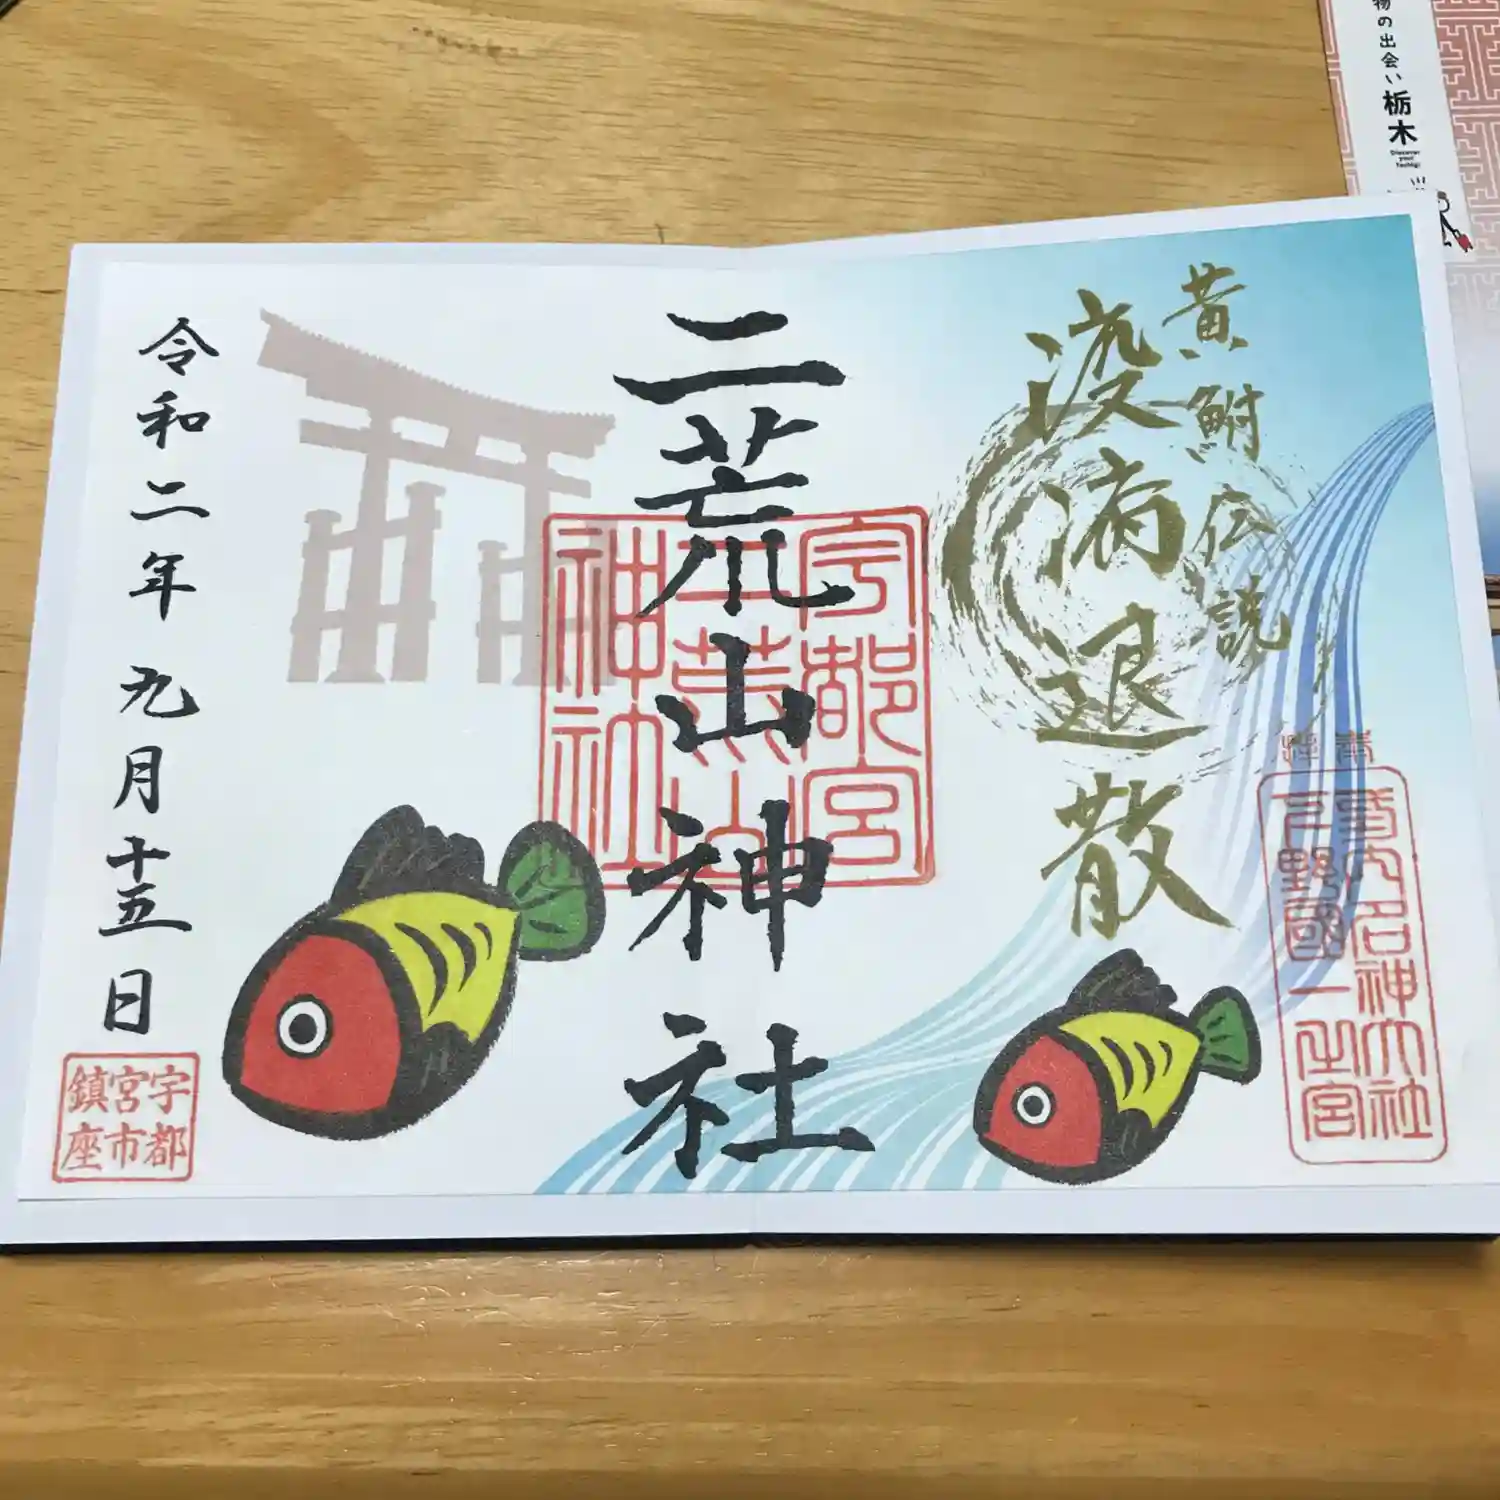 物の出会い栃木
Discover
your
Tochigi
黄鮒伝説
疫病退散
奉拝
延喜式内名神大社
下野國一之宮
二荒山神社
宇都宮
二荒山
神社
令和二年九月十五日
宇都
宮市
鎮座